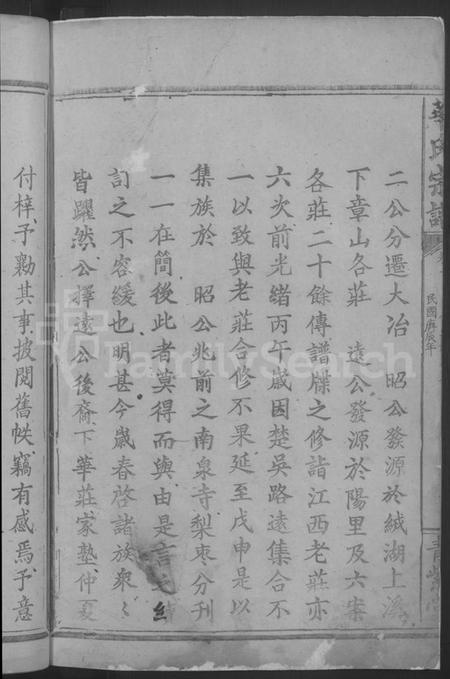 華氏宗譜
民國庚辰年
二公分遷大冶 昭公發源於絨湖上溪
下章山各莊 遠公發源於陽里及六案
各莊二十餘傳譜牒之修詣江西老莊亦
六次前光緒丙午歲因楚吳路遠集合不
一以致與老莊合修不果延至戊申是以
集族於 昭公兆前之南泉寺梨棗分刊
一一在簡後此者莫得而與由是言之
訂之不容緩也明甚今歲春啓諸族衆〻
皆躍然公擇遠公後裔下華莊家塾仲夏
付梓予勷其事披閱舊帙竊有感焉予意
FamilySearch